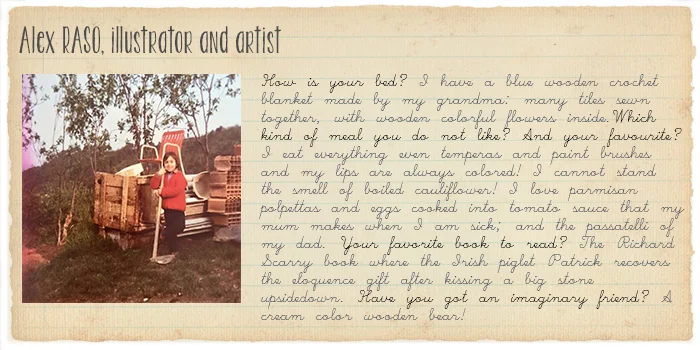 Alex RASO, illustrator and artist
How is your bed? I have a blue wooden crochet
blanket made by my grandma: many tiles sewn
together, with wooden colorful flowers inside. Which
kind of meal you do not like? And your favourite?
I eat everything even temperas and paint brushes
and my lips are always colored! I cannot stand
the smell of boiled cauliflower! I love parmisan
polpettas and eggs cooked into tomato sauce that my
mum makes when I am sick; and the passatelli of
my dad. Your favorite book to read? The Richard
Scarry book where the Irish piglet Patrick recovers
the eloquence gift after kissing a big stone
upsidedown. Have you got an imaginary friend? A
cream color wooden bear!